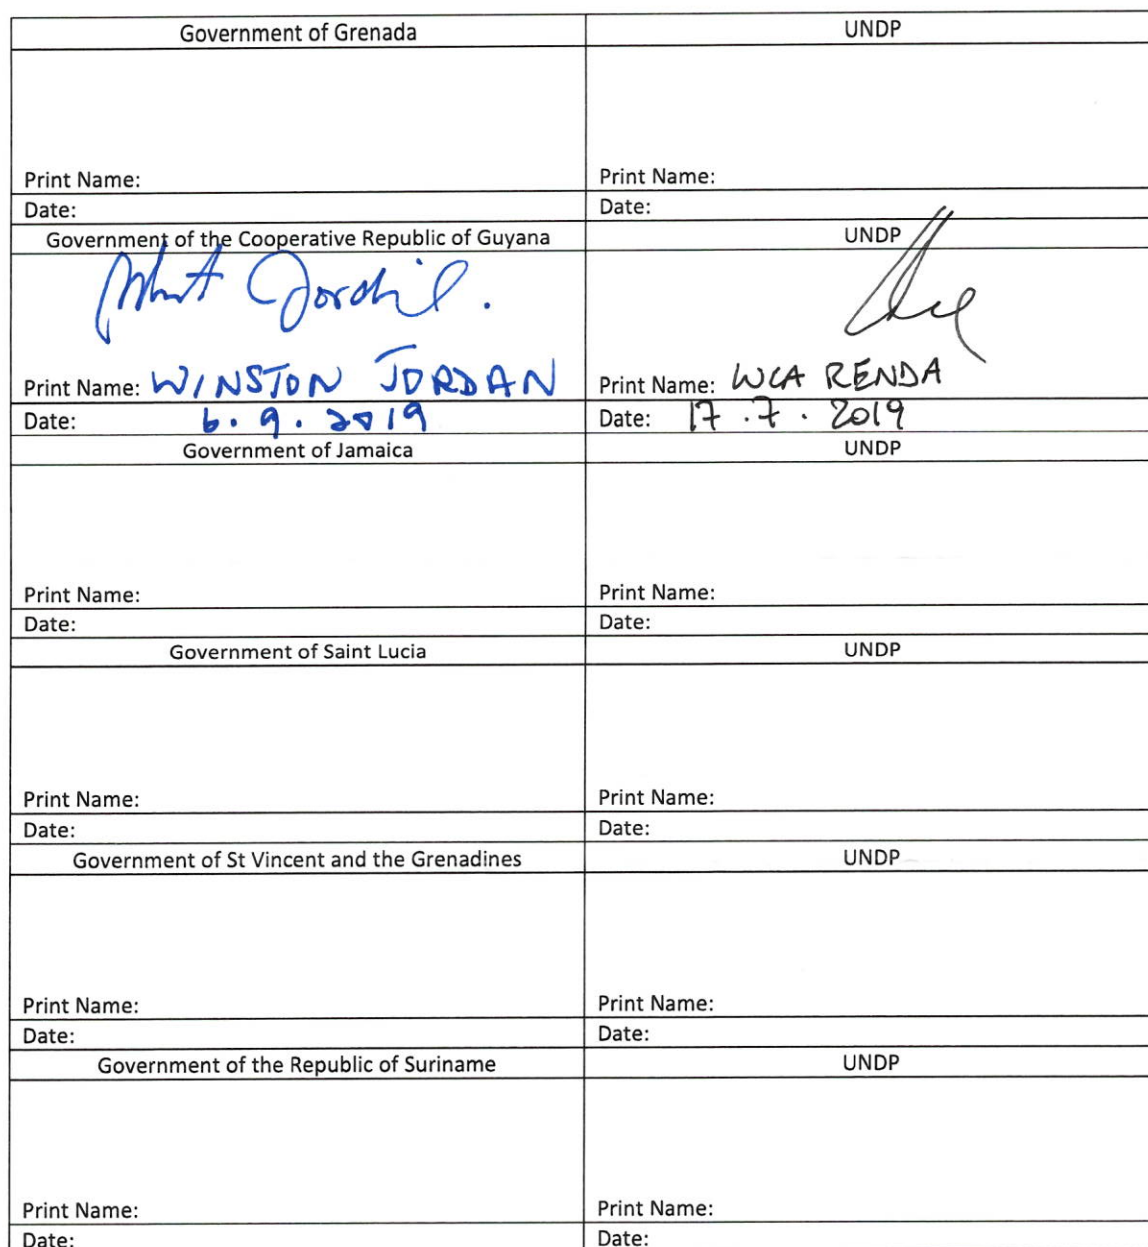 Government of Grenada UNDP
Print Name: Print Name:
Date: Date:
Government of the Cooperative Republic of Guyana UNDP
Print Name: WINSTON JORDAN Print Name: LUCA RENDA
Date: 6.9.2019 Date: 17.7.2019
Government of Jamaica UNDP
Print Name: Print Name:
Date: Date:
Government of Saint Lucia UNDP
Print Name: Print Name:
Date: Date:
Government of St Vincent and the Grenadines UNDP
Print Name: Print Name:
Date: Date:
Government of the Republic of Suriname UNDP
Print Name: Print Name:
Date: Date: